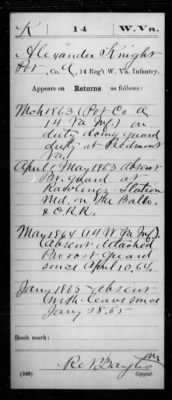 K | 14 | W. Va.
Alexander Knight
Pvt, Co. A, 14 Reg't W. Va. Infantry.
Appears on Returns as follows:
Mch 1863 (Pvt Co A
14 Va Inf) on
duty doing guard
duty at Piedmont
Va
April & May 1863 absent
on guard at
Rawlings Station
Md. on the Balto.
& O.R.R.
May 1864 (14 W Va Inf)
absent detached
Provost Guard
since April 10, 64.
Jany 1865 absent
with leave since
Jany 28. 65
Book mark:
(546)
Copyist.